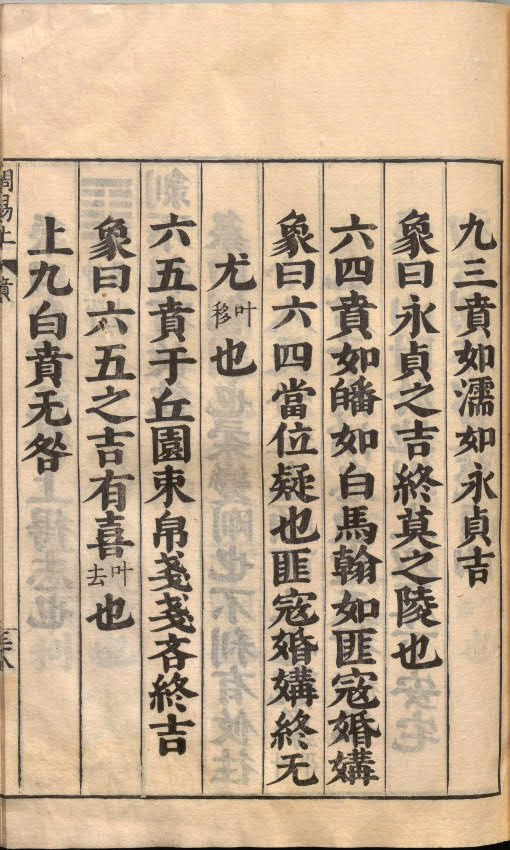 九三賁如濡如永貞吉
象曰永貞之吉終莫之陵也
六四賁如皤如白馬翰如匪寇婚媾
象曰六四當位疑也匪寇婚媾終无
尤叶移也
六五賁于丘園束帛戔戔吝終吉
象曰六五之吉有喜叶去也
上九白賁无咎
周易上 賁